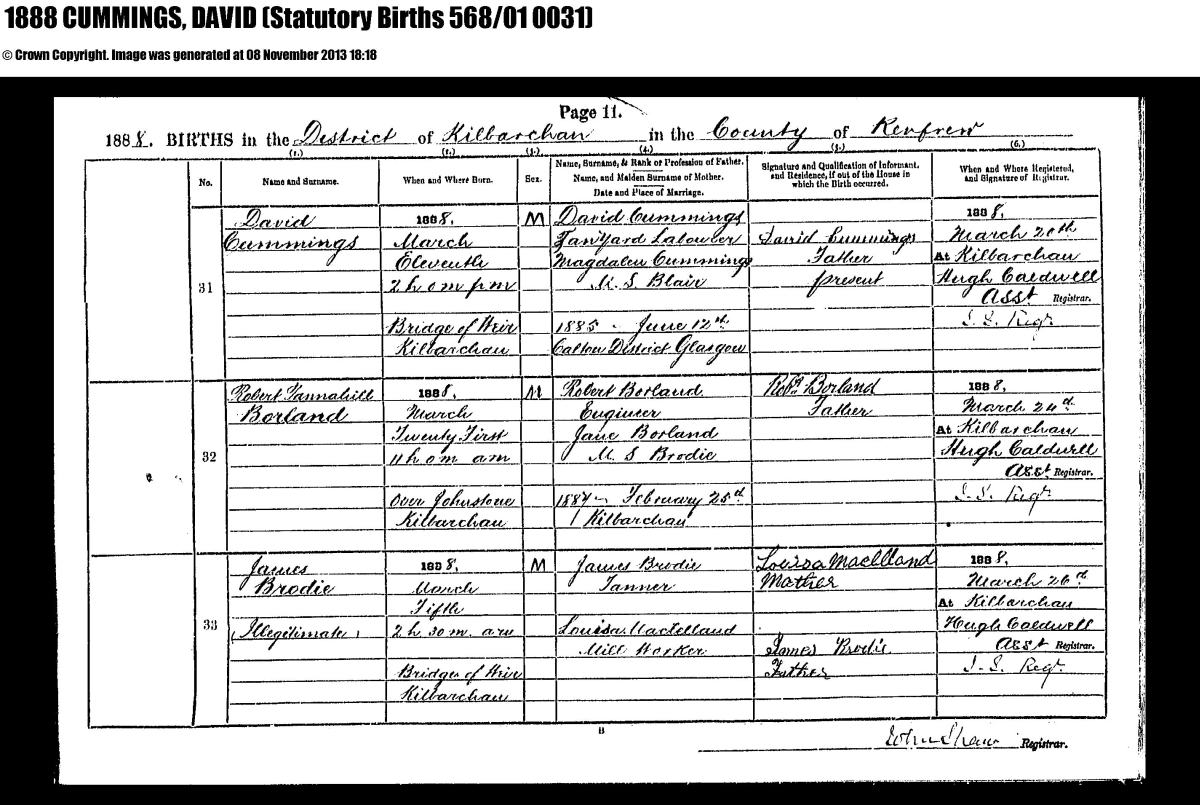 1888 CUMMINGS, DAVID (Statutory Births 568/01 0031)
© Crown Copyright. Image was generated at 08 November 2013 18:18
Page 11.
1888. BIRTHS in the District of Kilbarchan in the County of Renfrew
(1.) (2.) (3.) (4.) (5.) (6.)
No.
Name and Surname.
When and Where Born.
Sex.
Name, Surname, & Rank or Profession of Father.
Name, and Maiden Surname of Mother.
Date and Place of Marriage.
Signature and Qualification of Informant,
and Residence, if out of the House in
which the Birth occurred.
When and Where Registered,
and Signature of Registrar.
31
David
Cummings
1888,
March
Eleventh
2 h 0 m pm
Bridge of Weir
Kilbarchan
M
David Cummings
Tanyard Labourer
Magdalen Cummings
M. S. Blair
1885 - June 12th
Calton District Glasgow
David Cummings
Father
present
1888,
March 20th
At Kilbarchan
Hugh Caldwell
Asst Registrar.
I. S. Regr
32
Robert Tannahill
Borland
1888,
March
Twenty First
11 h 0 m am
Over Johnstone
Kilbarchan
M
Robert Borland
Engineer
Jane Borland
M. S. Brodie
1887 - February 25th
Kilbarchan
Robt Borland
Father
1888,
March 24th
At Kilbarchan
Hugh Caldwell
Asst Registrar.
I. S. Regr
33
James
Brodie
(Illegitimate)
1888,
March
Fifth
2 h. 30 m. am
Bridge of Weir
Kilbarchan
M
James Brodie
Tanner
Louisa Maclelland
Mill Worker
Louisa Maclelland
Mother
James Brodie
Father
1888,
March 26th
At Kilbarchan
Hugh Caldwell
Asst Registrar.
I. S. Regr.
B
John Shaw Registrar.